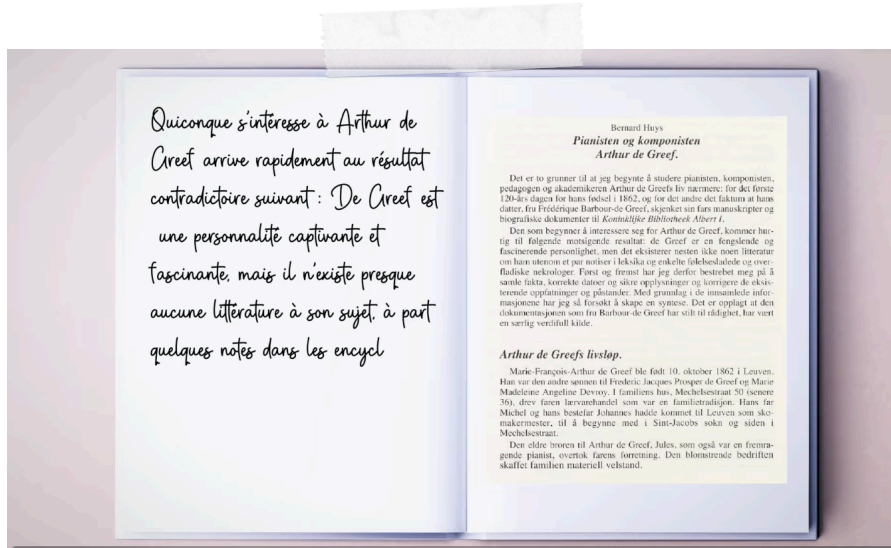 Quiconque s'intéresse à Arthur de
Greef arrive rapidement au résultat
contradictoire suivant : De Greef est
une personnalité captivante et
fascinante, mais il n'existe presque
aucune littérature à son sujet, à part
quelques notes dans les encycl
Bernard Huys
Pianisten og komponisten
Arthur de Greef.
Det er to grunner til at jeg begynte å studere pianisten, komponisten,
pedagogen og akademikeren Arthur de Greefs liv nærmere: for det første
120-års dagen for hans fødsel i 1862, og for det andre det faktum at hans
datter, fru Frédérique Barbour-de Greef, skjenket sin fars manuskripter og
biografiske dokumenter til Koninklijke Bibliotheek Albert I.
Den som begynner å interessere seg for Arthur de Greef, kommer hur-
tig til følgende motsigende resultat: de Greef er en fengslende og
fascinerende personlighet, men det eksisterer nesten ikke noen litteratur
om ham utenom et par notiser i leksika og enkelte følelsesladede og over-
fladiske nekrologer. Først og fremst har jeg derfor bestrebet meg på å
samle fakta, korrekte datoer og sikre opplysninger og korrigere de eksis-
terende oppfatninger og påstander. Med grunnlag i de innsamlede infor-
masjonene har jeg så forsøkt å skape en syntese. Det er opplagt at den
dokumentasjonen som fru Barbour-de Greef har stilt til rådighet, har vært
en særlig verdifull kilde.
Arthur de Greefs livsløp.
Marie-François-Arthur de Greef ble født 10. oktober 1862 i Leuven.
Han var den andre sønnen til Frederic Jacques Prosper de Greef og Marie
Madeleine Angeline Devroy. I familiens hus, Mechelsestraat 50 (senere
36), drev faren lærvarehandel som var en familietradisjon. Hans far
Michel og hans bestefar Johannes hadde kommet til Leuven som sko-
makermester, til å begynne med i Sint-Jacobs sokn og siden i
Mechelsestraat.
Den eldre broren til Arthur de Greef, Jules, som også var en fremra-
gende pianist, overtok farens forretning. Den blomstrende bedriften
skaffet familien materiell velstand.